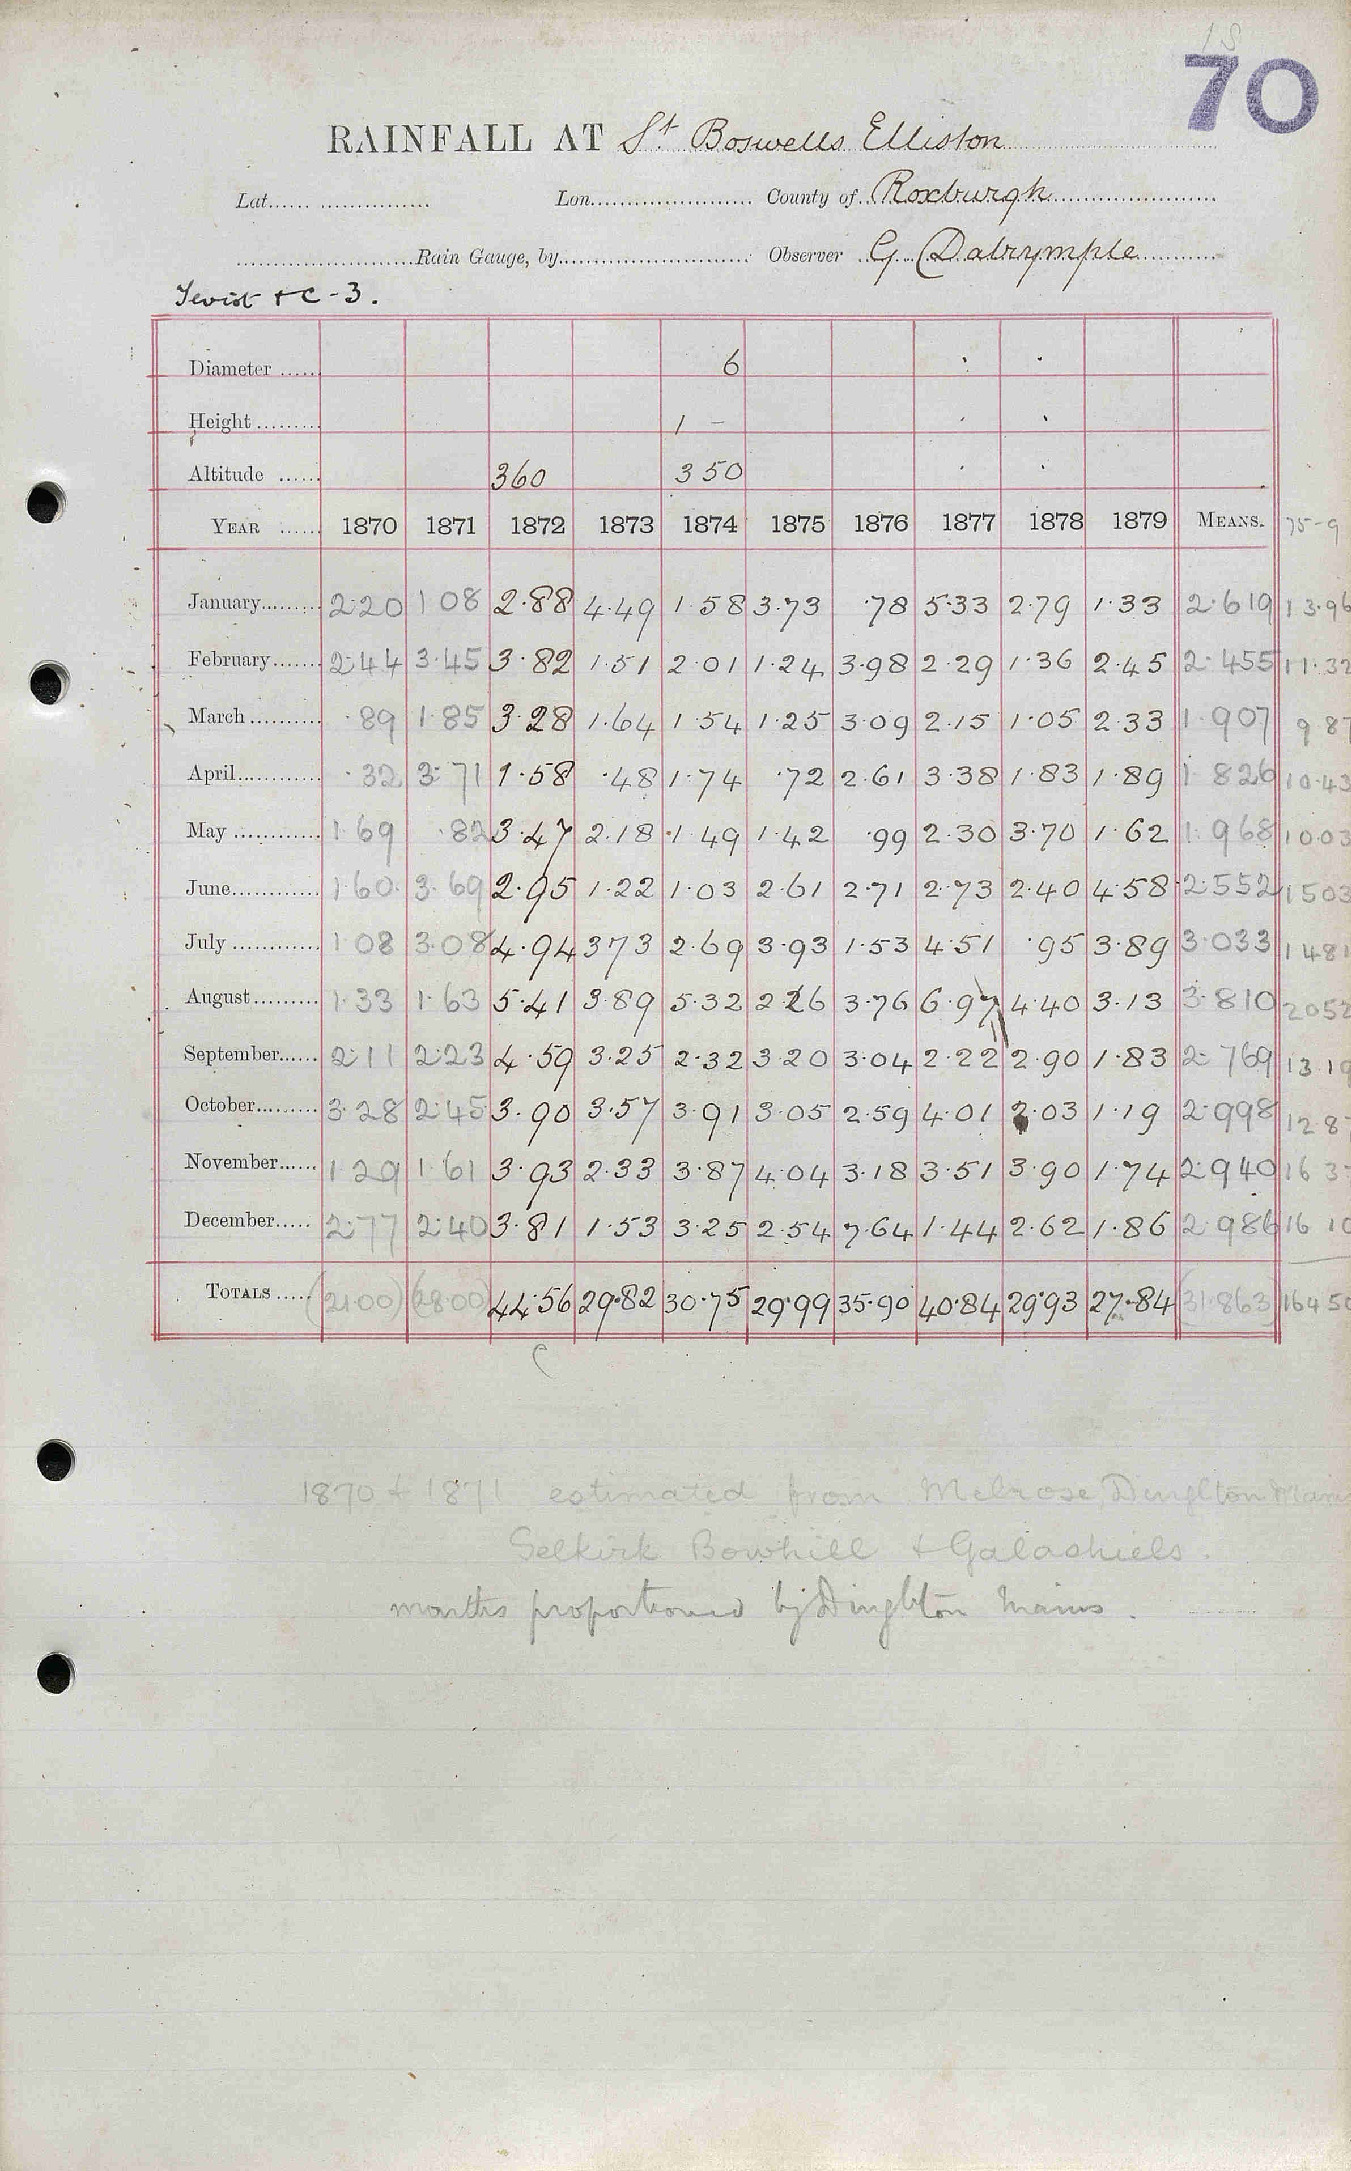 18
70
RAINFALL AT St Boswells Elliston
Lat. Lon. County of Roxburgh
Rain Gauge, by Observer G Dalrymple
Teviot &c - 3.
Diameter 6
Height 1 -
Altitude 360 350
YEAR 1870 1871 1872 1873 1874 1875 1876 1877 1878 1879 MEANS. 75-9
January 2.20 1 08 2.88 4.49 1.58 3.73 .78 5.33 2.79 1.33 2.619 13.96
February 2.44 3.45 3.82 1.51 2.01 1.24 3.98 2.29 1.36 2.45 2.455 11.32
March .89 1.85 3.28 1.64 1.54 1.25 3.09 2.15 1.05 2.33 1.907 9 87
April .32 3.71 1.58 .48 1.74 .72 2.61 3.38 1.83 1.89 1.826 10.43
May 1.69 .82 3.47 2.18 1.49 1.42 .99 2.30 3.70 1.62 1.968 10.03
June 1.60 3.69 2.95 1.22 1.03 2.61 2.71 2.73 2.40 4.58 2.552 15 03
July 1.08 3.08 4.94 3.73 2.69 3.93 1.53 4.51 .95 3.89 3.033 14 81
August 1.33 1.63 5.41 3.89 5.32 2.26 3.76 6.97 4.40 3.13 3.810 20 52
September 2.11 2.23 4.59 3.25 2.32 3.20 3.04 2.22 2.90 1.83 2.769 13 19
October 3.28 2.45 3.90 3.57 3.91 3.05 2.59 4.01 2.03 1.19 2.998 12 87
November 1 29 1.61 3.93 2.33 3.87 4.04 3.18 3.51 3.90 1.74 2.940 16 3
December 2.77 2.40 3.81 1.53 3.25 2.54 7.64 1.44 2.62 1.86 2.986 16 10
TOTALS (21.00) (28.00) 44.56 29.82 30.75 29.99 35.90 40.84 29.93 27.84 (31.863) 164 50
C
1870 & 1871 estimated from Melrose, Dinglton Mains
Selkirk Bowhill & Galashiels.
months proportioned by Dinglton Mains.